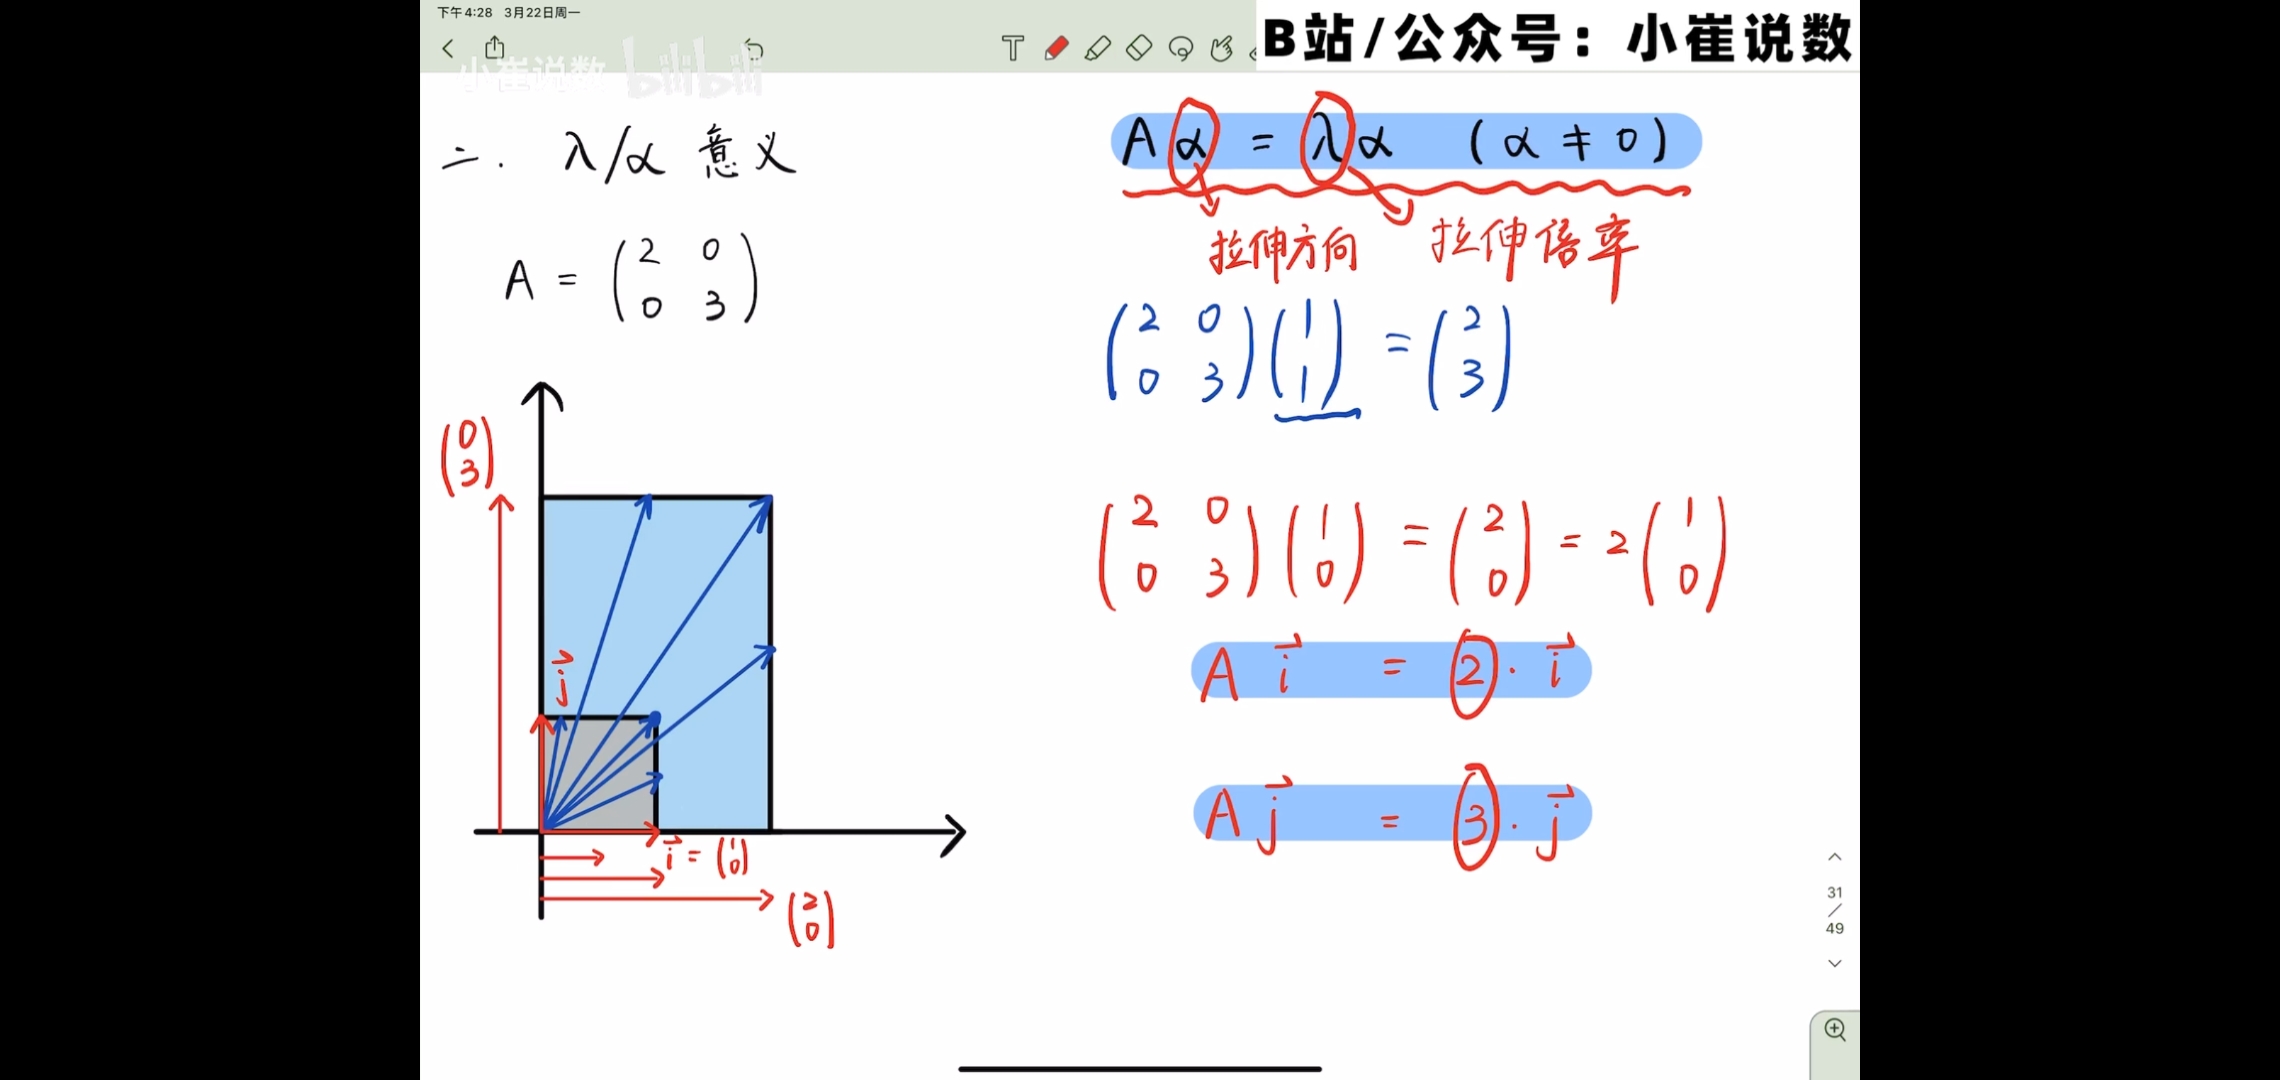 下午4:28 3月22日周一
B站/公众号：小崔说数
小崔说数 bilibili
二. λ/α 意义
A = (2 0
0 3)
Aα = λα (α ≠ 0)
拉伸方向 拉伸倍率
(2 0
0 3) (1
1) = (2
3)
(2 0
0 3) (1
0) = (2
0) = 2 (1
0)
A i⃗ = 2 · i⃗
A j⃗ = 3 · j⃗
(0
3)
j⃗
i⃗ = (1
0)
(2
0)
31
/
49